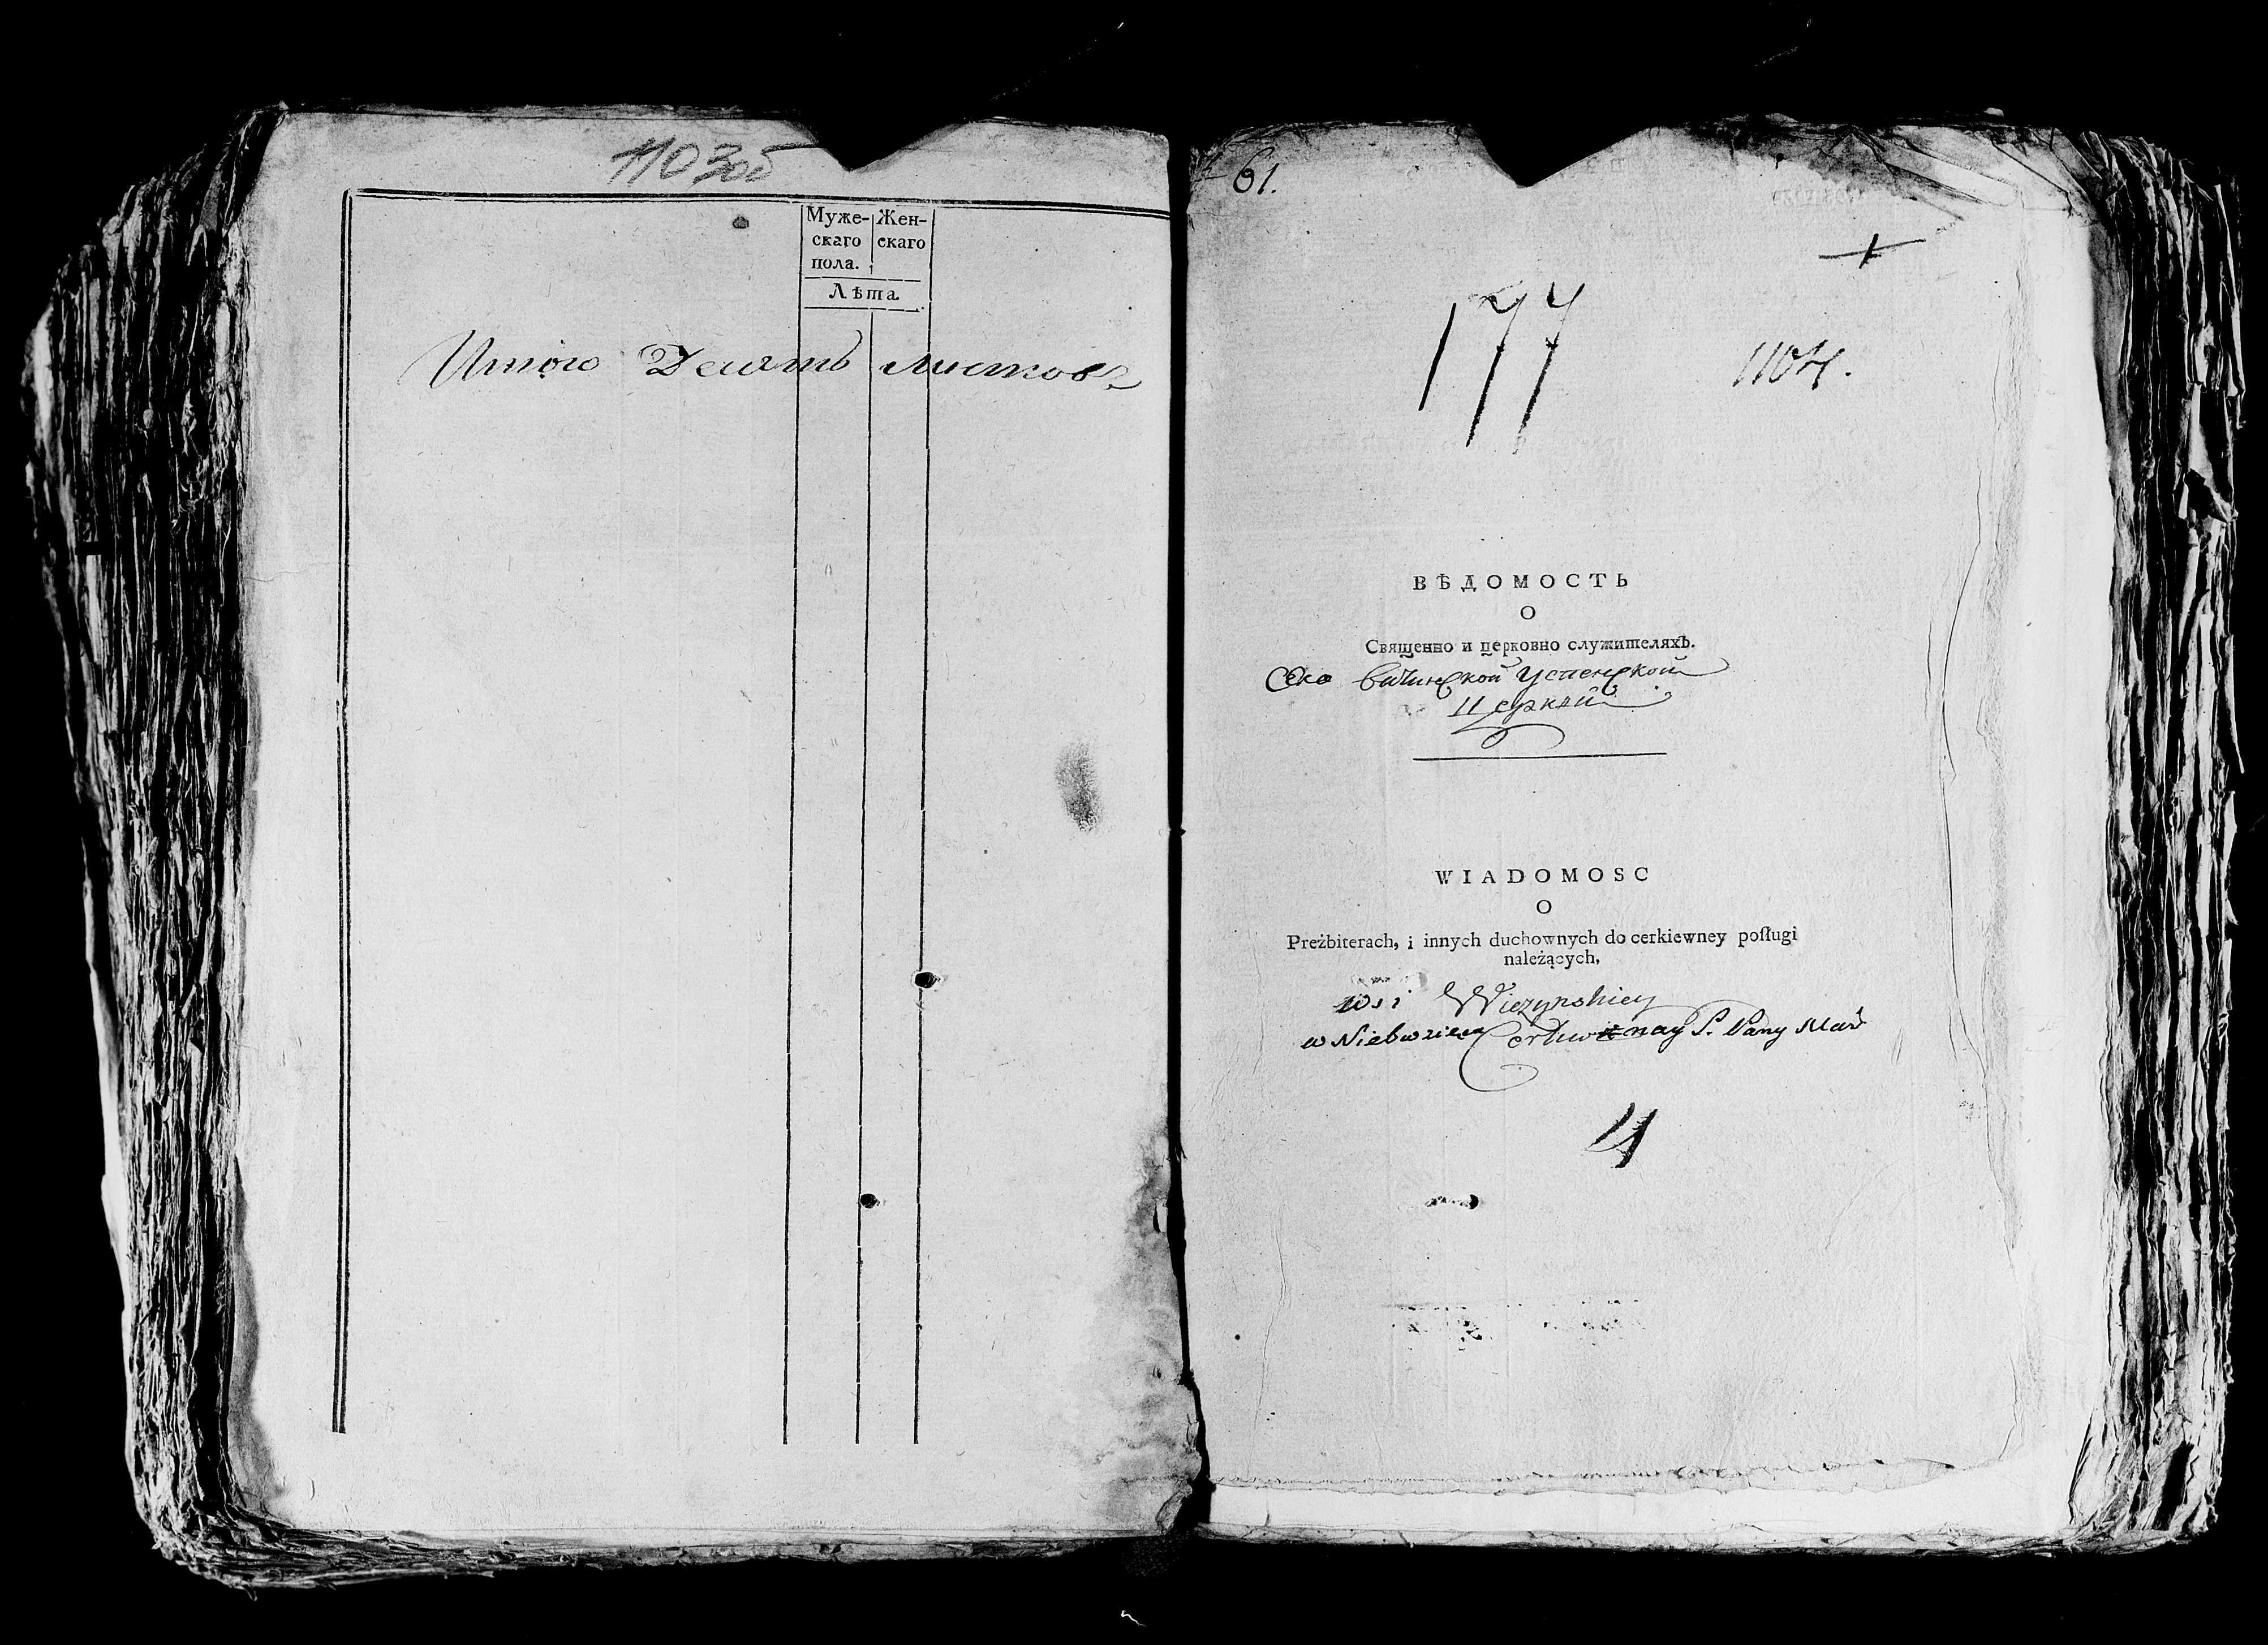 1103об
Муже- Жен-
скаго скаго
пола.
Лѣта
Итого Десять листковъ
61.
177
1104.
ВѢДОМОСТЬ
О
Священно и церковно служителяхъ.
Успенской
Церкви
WIADOMOSC
O
Preżbiterach, i innych duchownych do cerkiewney posługi
należących,
wsi Wiczynskiey
w Niebwziec P. Pany Mar
4